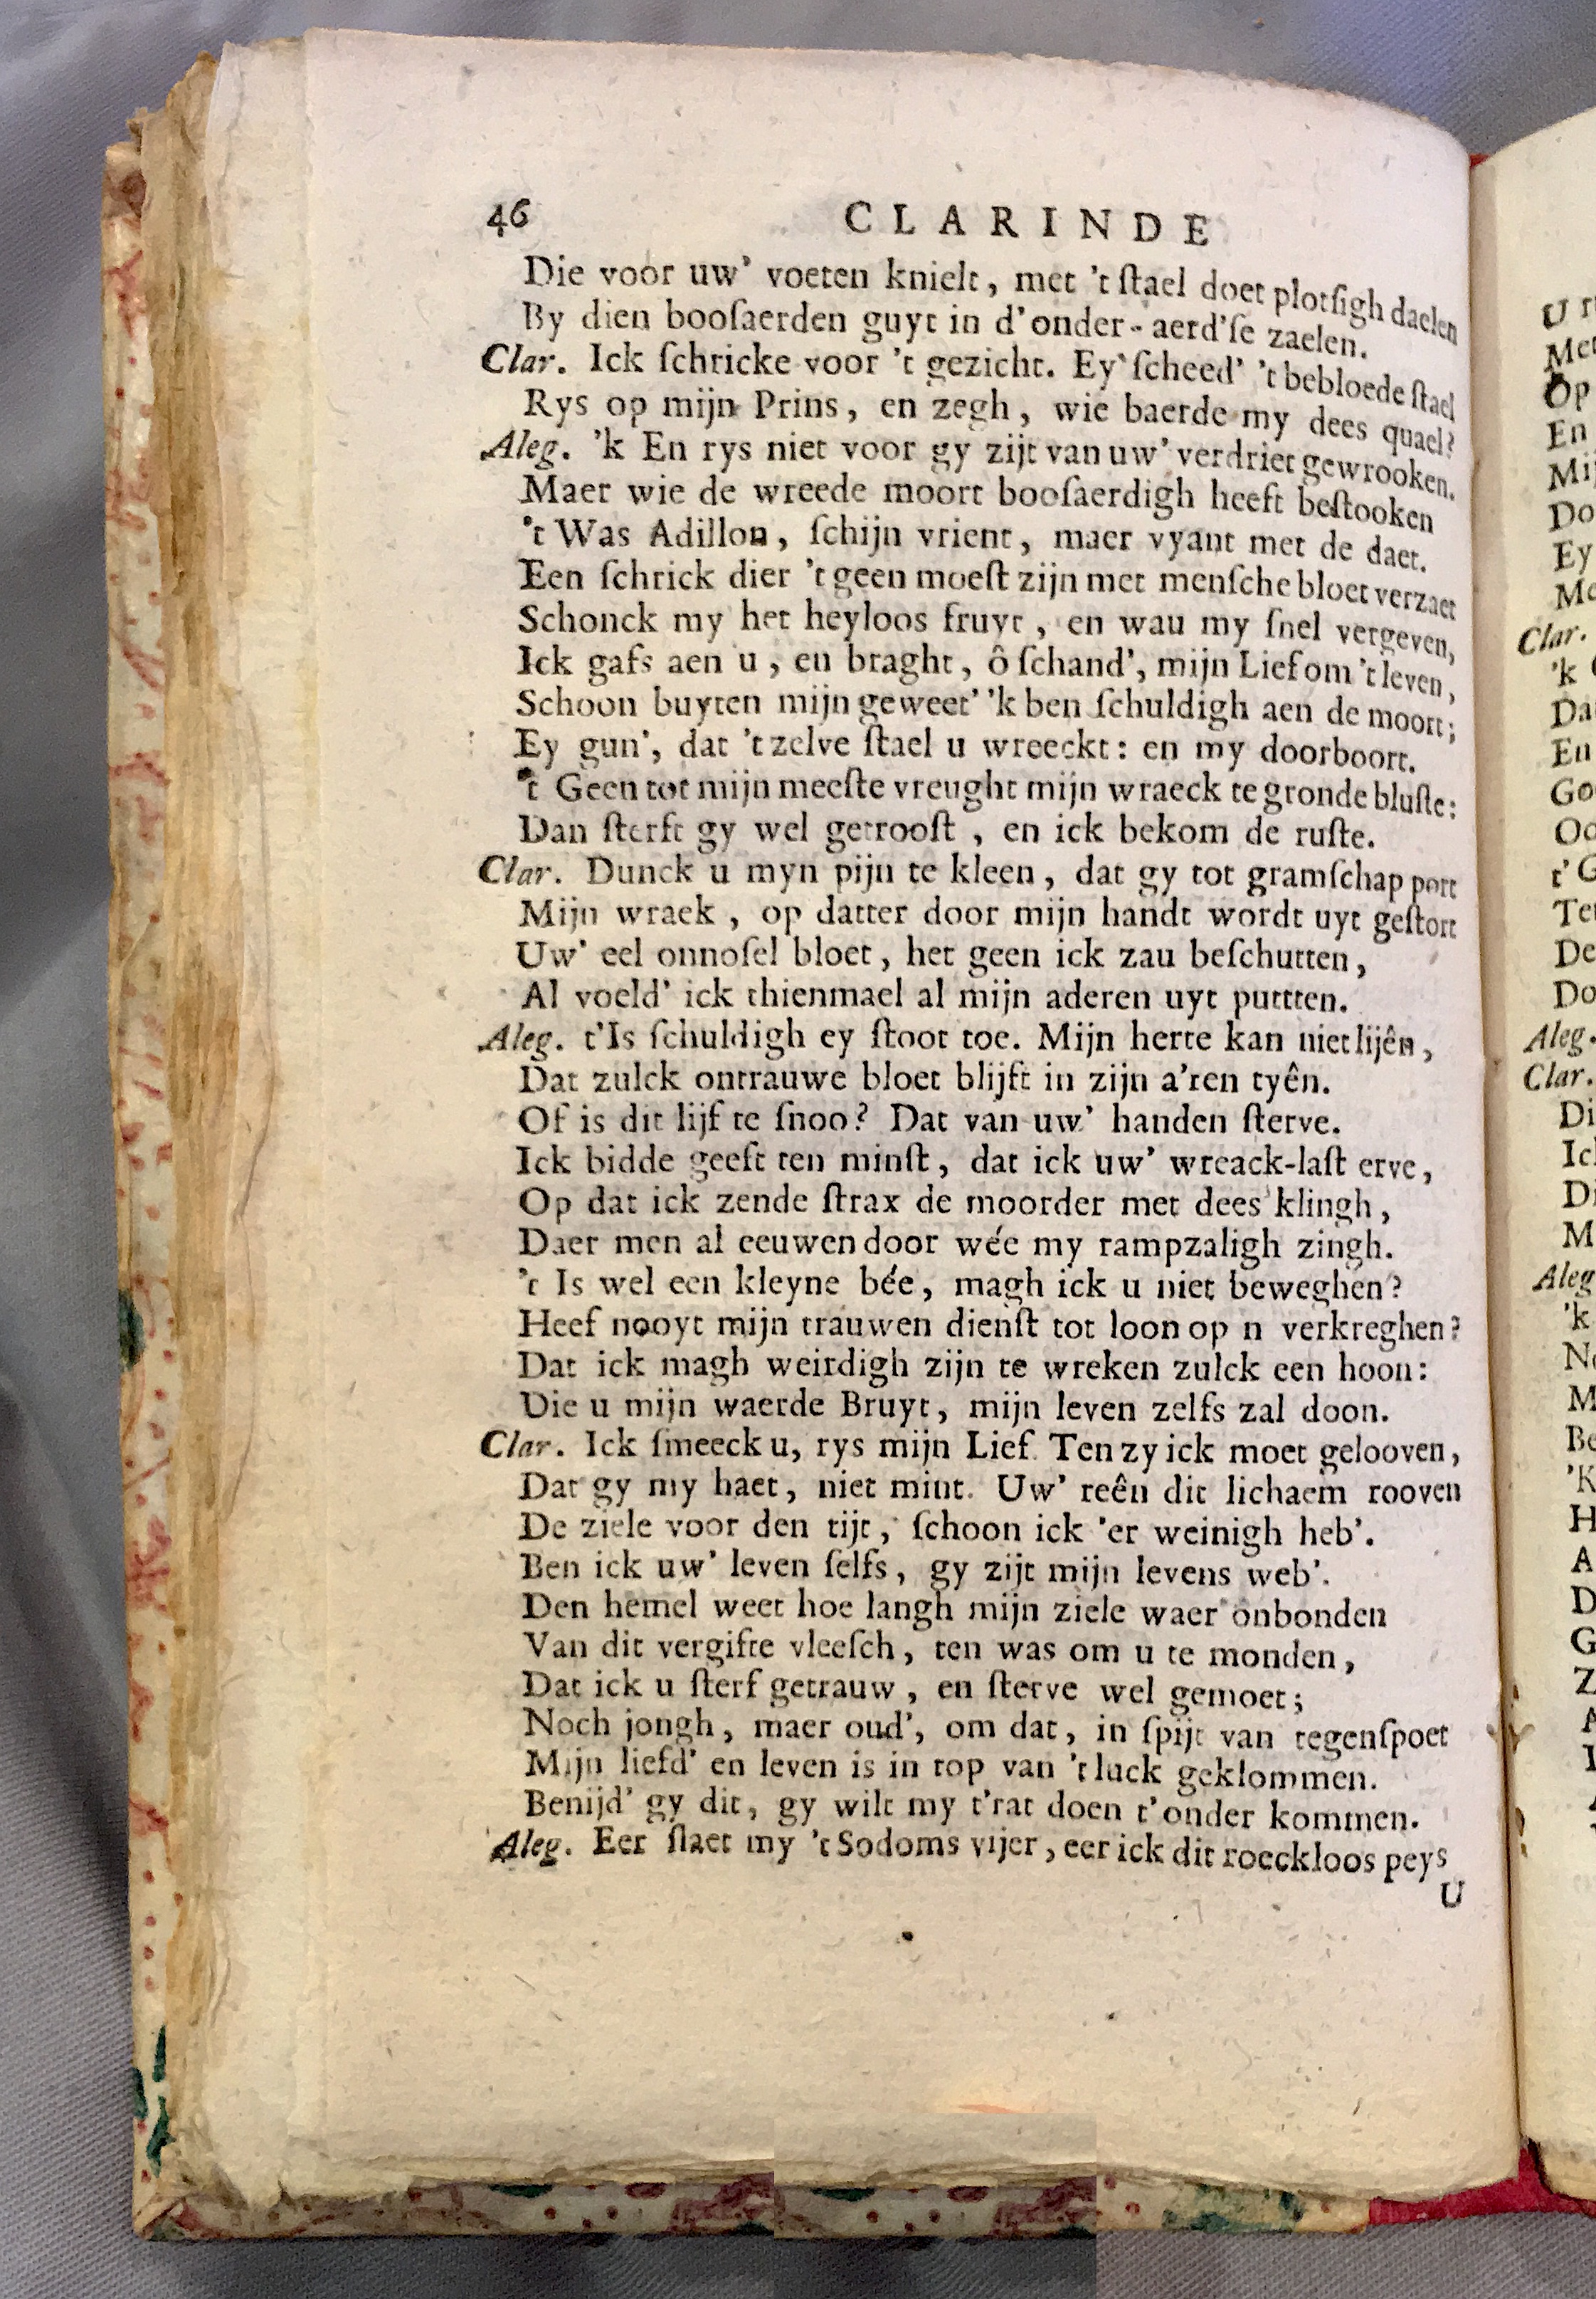 46 CLARINDE
Die voor uw' voeten knielt, met 't ſtael doet plotſigh daelen
By dien booſaerden guyt in d'onder-aerd'ſe zaelen.
Clar. Ick ſchricke voor 't gezicht. Ey ſcheed' 't bebloede ſtael
Rys op mijn Prins, en zegh, wie baerde my dees quael?
Aleg. 'k En rys niet voor gy zijt van uw' verdriet gewrooken.
Maer wie de wreede moort booſaerdigh heeft beſtooken
't Was Adillon, ſchijn vrient, maer vyant met de daet.
Een ſchrick dier 't geen moeſt zijn met menſche bloet verzaet
Schonck my het heyloos fruyt, en wau my ſnel vergeven,
Ick gafs aen u, en braght, ô ſchand', mijn Lief om 't leven,
Schoon buyten mijn geweet' 'k ben ſchuldigh aen de moort;
Ey gun', dat 't zelve ſtael u wreeckt: en my doorboort.
't Geen tot mijn meeſte vreught mijn wraeck te gronde bluſte:
Dan ſterft gy wel getrooſt, en ick bekom de ruſte.
Clar. Dunck u myn pijn te kleen, dat gy tot gramſchap port
Mijn wraek, op datter door mijn handt wordt uyt geſtort
Uw' eel onnoſel bloet, het geen ick zau beſchutten,
Al voeld' ick thienmael al mijn aderen uyt puttten.
Aleg. t'Is ſchuldigh ey ſtoot toe. Mijn herte kan niet lijên,
Dat zulck ontrauwe bloet blijft in zijn a'ren tyên.
Of is dit lijf te ſnoo? Dat van uw' handen ſterve.
Ick bidde geeft ten minſt, dat ick uw' wreack-laſt erve,
Op dat ick zende ſtrax de moorder met dees klingh,
Daer men al eeuwen door wée my rampzaligh zingh.
't Is wel een kleyne bée, magh ick u niet beweghen?
Heef nooyt mijn trauwen dienſt tot loon op n verkreghen?
Dat ick magh weirdigh zijn te wreken zulck een hoon:
Die u mijn waerde Bruyt, mijn leven zelfs zal doon.
Clar. Ick ſmeeck u, rys mijn Lief. Ten zy ick moet gelooven,
Dat gy my haet, niet mint. Uw' reên dit lichaem rooven
De ziele voor den tijt, ſchoon ick 'er weinigh heb'.
Ben ick uw' leven ſelfs, gy zijt mijn levens web'.
Den hemel weet hoe langh mijn ziele waer onbonden
Van dit vergifte vleeſch, ten was om u te monden,
Dat ick u ſterf getrauw, en ſterve wel gemoet;
Noch jongh, maer oud', om dat, in ſpijt van tegenſpoet
Mijn liefd' en leven is in top van 't luck geklommen.
Benijd' gy dit, gy wilt my t'rat doen t'onder kommen.
Aleg. Eer ſlaet my 't Sodoms vijer, eer ick dit roeckloos peys
U
Met
Op
En
Mij
Do
Ey
Me
Clar.
'k
Da
En
Go
Oo
t'G
Te
De
Do
Aleg.
Clar.
Di
Ic
Di
M
Aleg
'k
No
M
Be
'K
H
A
D
G
Z